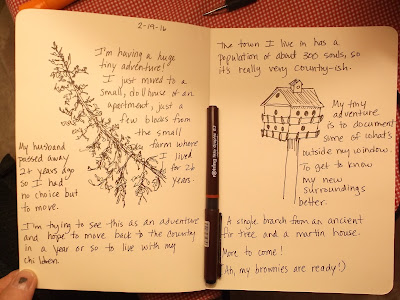 2-19-16
I'm having a huge
tiny adventure!
I just moved to a
small, doll house of an
apartment, just a
few blocks from
the small
farm where
I lived
for 26
years.
My husband
passed away
2+ years ago
so I had
no choice but
to move.
I'm trying to see this as an adventure
and hope to move back to the country
in a year or so to live with my
children.
The town I live in has a
population of about 300 souls, so
it's really very country-ish.
My tiny
adventure
is to document
some of what's
outside my window.
To get to know
my new
surroundings
better.
A single branch from an ancient
fir tree and a martin house.
More to come!
(Ah, my brownies are ready!)